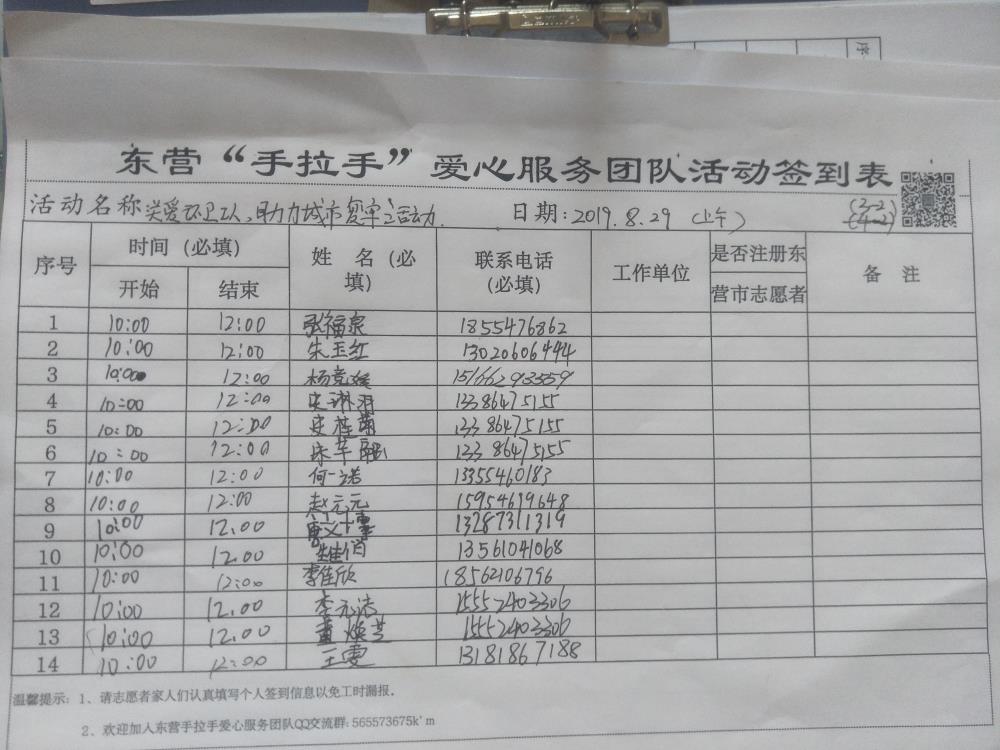 序
东营“手拉手”爱心服务团队活动签到表
活动名称 关爱环卫工人,助力城市复审活动. 日期:2019.8.29 (上午)
序号 时间（必填） 姓 名（必填） 联系电话（必填） 工作单位 是否注册东营市志愿者 备 注
开始 结束
1 10:00 12:00 张福泉 1855476862
2 10:00 12:00 朱玉红 13020606444
3 10:00 12:00 15166293559
4 10:00 12:00 史琳羽 13386475155
5 10:00 12:00 史桂菊 13386475155
6 10:00 12:00 13386475155
7 10:00 12:00 何一诺 13355460183
8 10:00 12:00 赵元元 15954619648
9 10:00 12.00 13287311319
10 10:00 12.00 13561041068
11 10:00 12:00 李佳欣 18562106796
12 10:00 12.00 李元洁 15552403306
13 10:00 12.00 董焕芝 15552403306
14 10:00 12:00 王雯 13181867188
温馨提示：1、请志愿者家人们认真填写个人签到信息以免工时漏报。
2、欢迎加入东营手拉手爱心服务团队QQ交流群: 565573675k'm